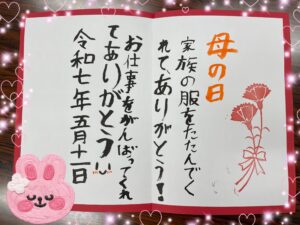 母の日
家族の服をたたんでく
れて、ありがとう!
お仕事をがんばってくれ
てありがとう
令和七年五月十一日